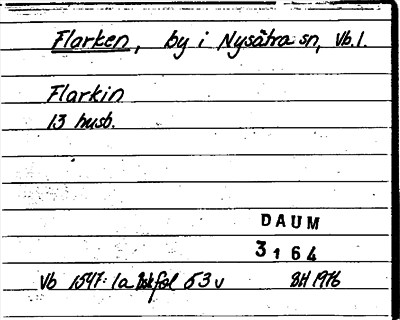 Flarken, by i Nysätra sn, Vb. l.
Flarkin
13 husb.
DAUM
3164
Vb 1547: 1a fol 53v BH 1976